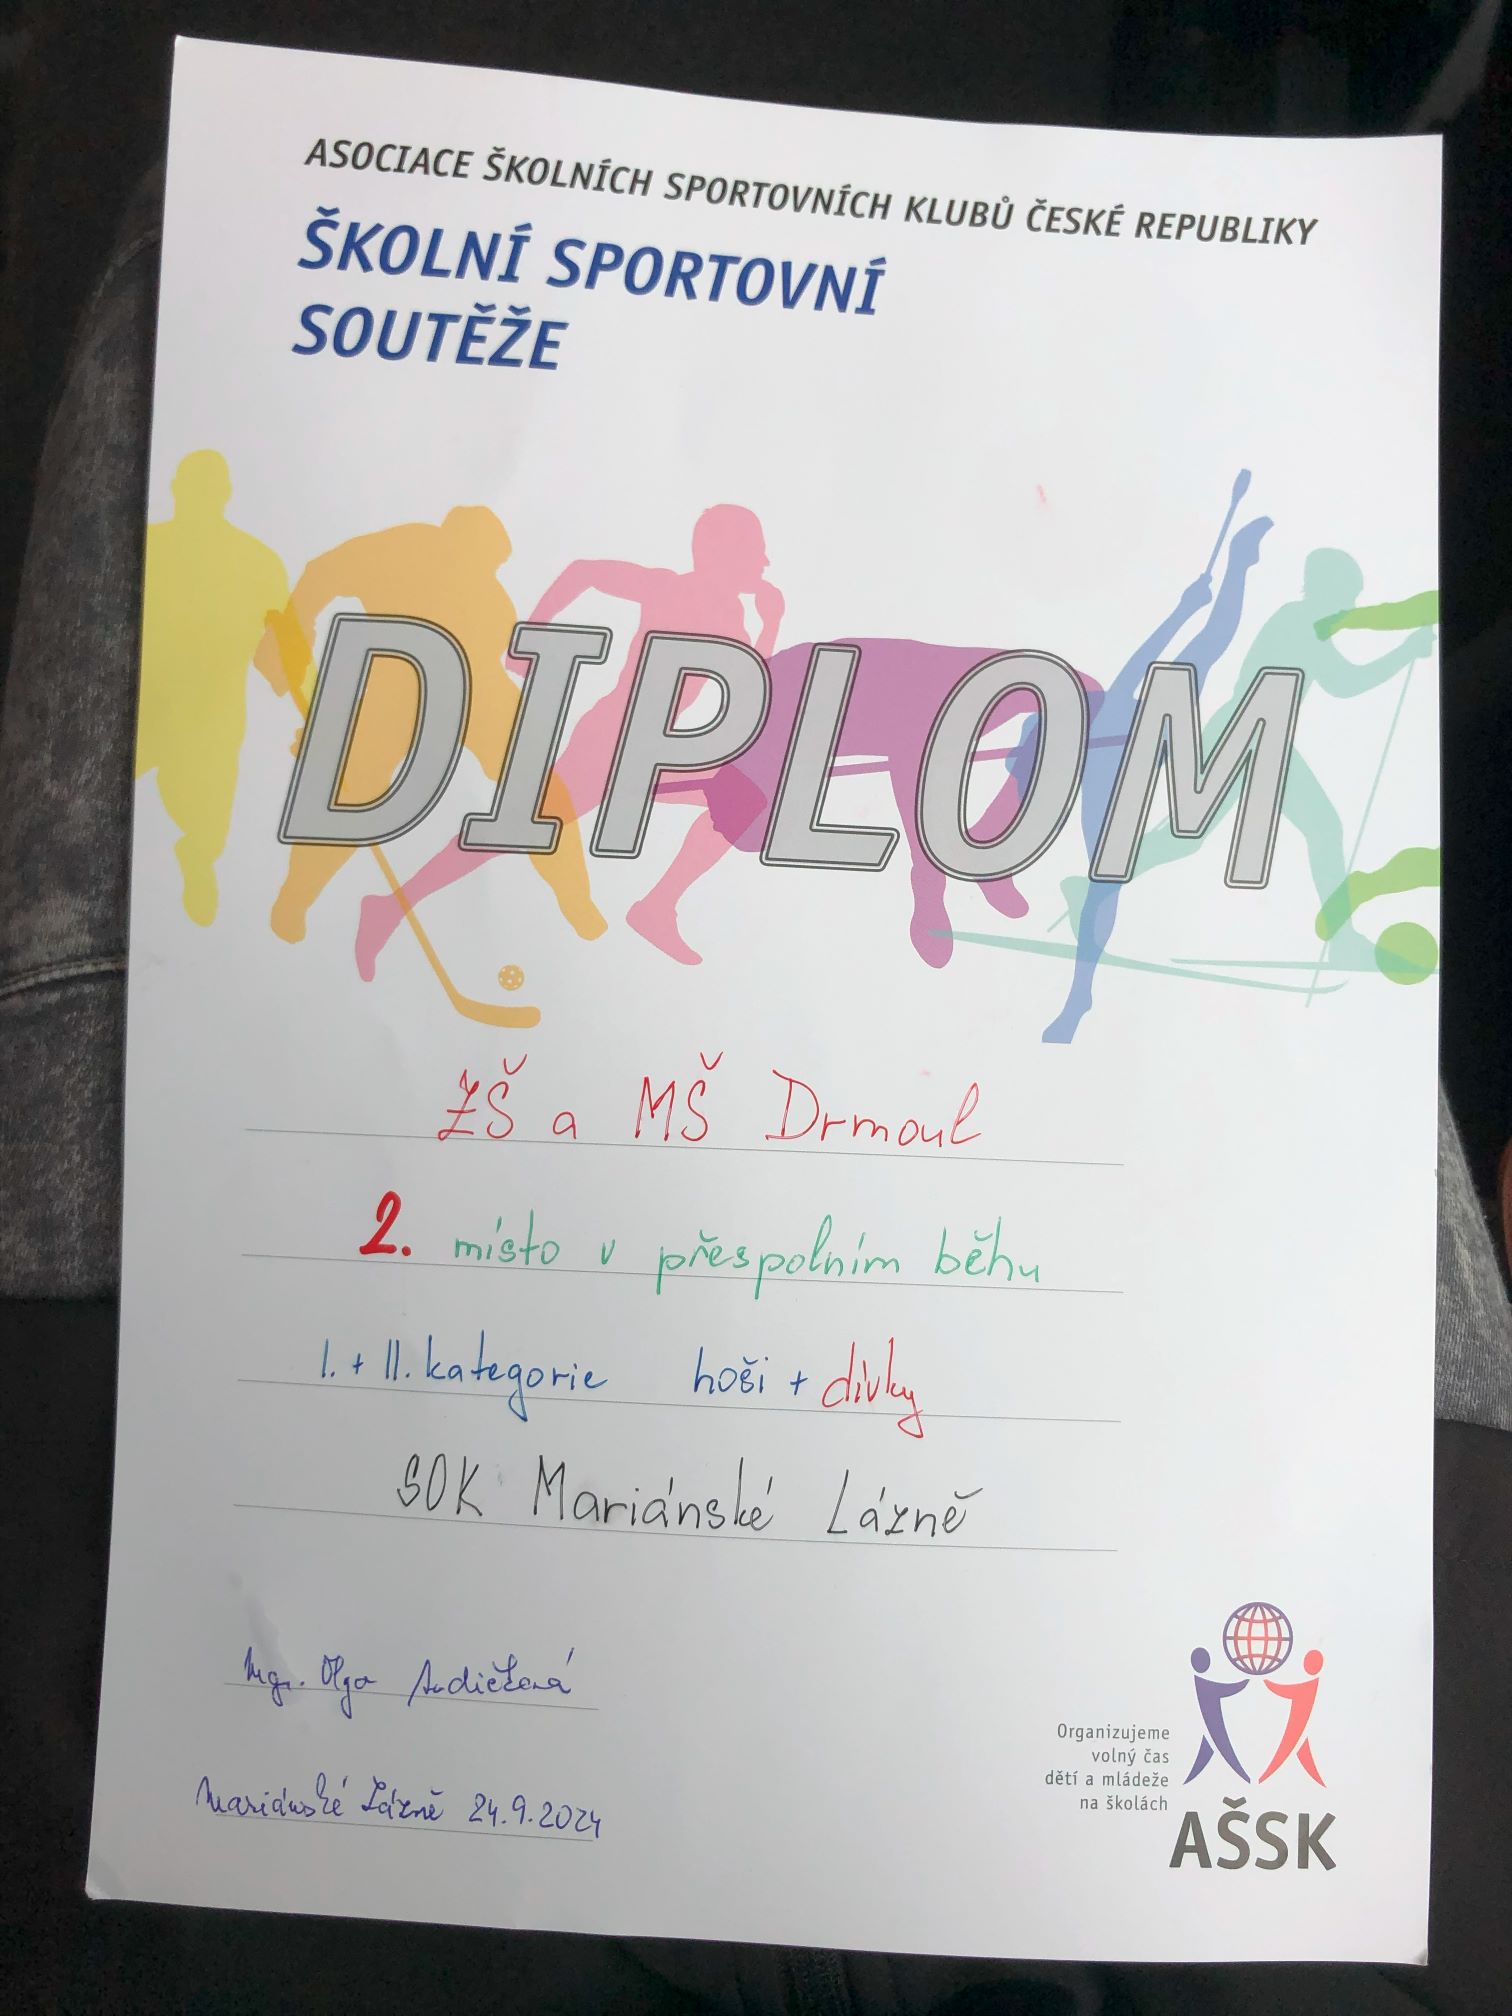 ASOCIACE ŠKOLNÍCH SPORTOVNÍCH KLUBŮ ČESKÉ REPUBLIKY
ŠKOLNÍ SPORTOVNÍ
SOUTĚŽE
DIPLOM
ZŠ a MŠ Drmoul
2. místo v přespolním běhu
I. + II. kategorie hoši + dívky
SOK Mariánské Lázně
Ing. Olga
Mariánské Lázně 24.9.2024
Organizujeme
volný čas
dětí a mládeže
na školách
AŠSK